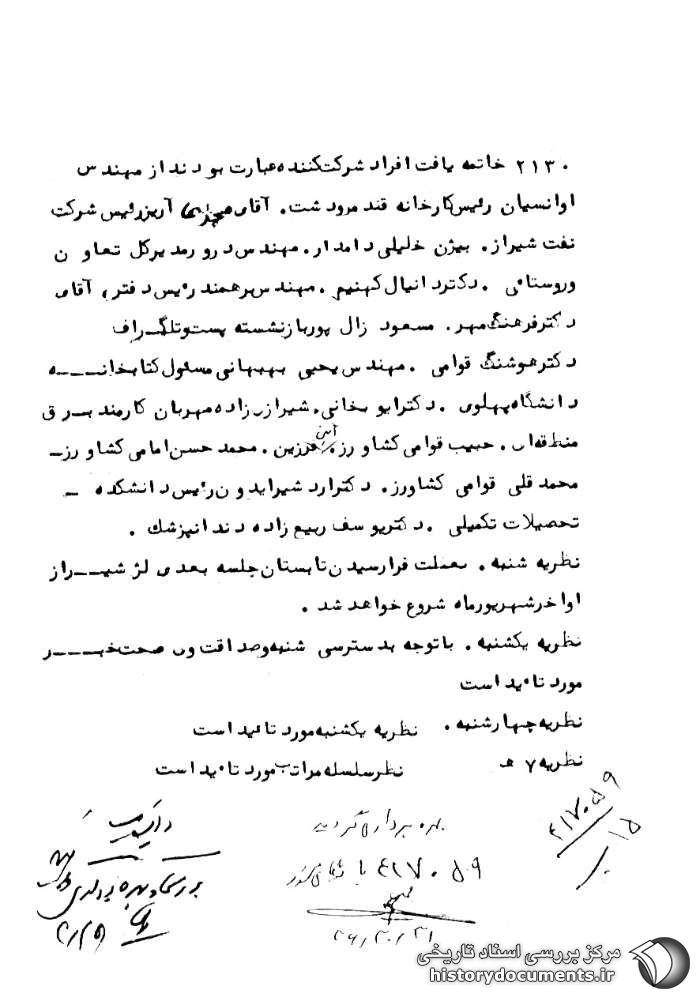 ۲۱۳۰ خاتمه یافت افراد شرکت‌کننده عبارت بودند از مهندس
اوانسیان رئیس کارخانه قند مرودشت. آقای آریز رئیس شرکت
نفت شیراز. بیژن خلیلی دامدار. مهندس درورمدیرکل تعاون
وروستائی. دکتردانیال کهنیم. مهندس برهمند رئیس دفتر، آقای
دکترفرهنگ مهر. مسعود زال پوربازنشسته پست وتلگراف
دکترهوشنگ قوامی. مهندس یحیی بهبهانی مسئول کتابخانه
دانشگاه پهلوی. دکترایوبخانی. شیرازی زاده مهربان کارمند برق
منطقه‌ای. حبیب قوامی کشاورز. فرزین. محمد حسن امامی کشاورز
محمد قلی قوامی کشاورز. دکترارد شیرایدون رئیس دانشکده
تحصیلات تکمیلی. دکتریوسف ربیع زاده دندانپزشک.
نظریه شنبه. بعلت فرارسیدن تابستان جلسه بعدی لژ شیراز
اواخرشهریورماه شروع خواهد شد.
نظریه یکشنبه. باتوجه بدسترسی شنبه وصداقت وی صحت خبر
مورد تائید است
نظریه چهارشنبه. نظریه یکشنبه مورد تائید است
نظریه ۷ ه‍ نظرسلسله مراتب مورد تائید است
بهره برداری گردید
۴۱۷۰۵۹
۱۵
۴۱۷۰۵۹ با
مرکز بررسی اسناد تاریخی
historydocuments.ir